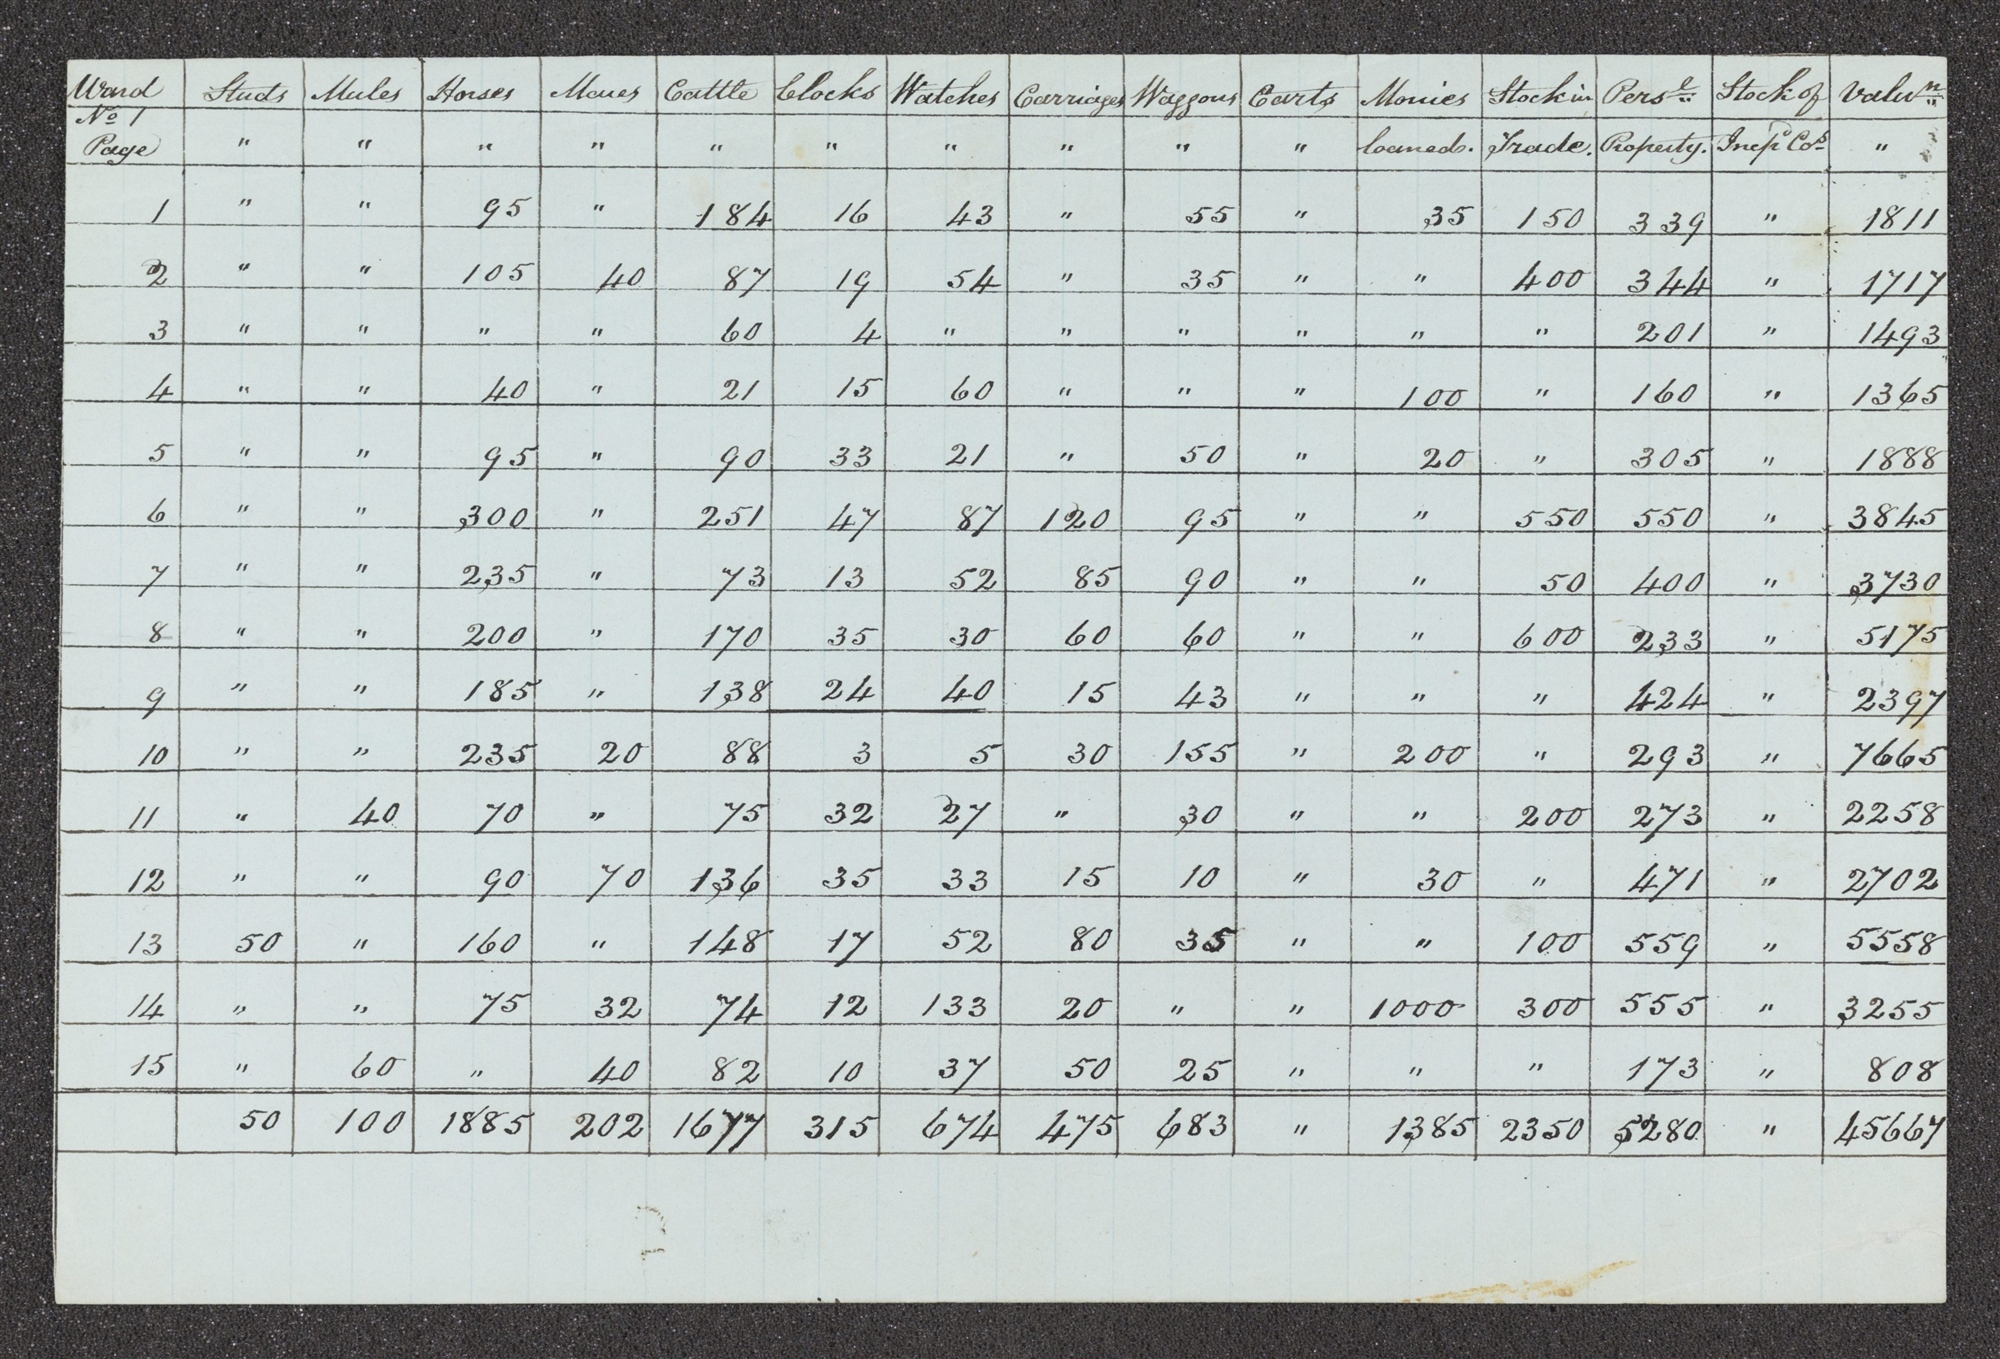 Ward Studs Mules Horses Mares Cattle Clocks Watches Carriages Waggons Carts Monies Stock in Persl Stock of Valun
No 1
Page " " " " " " " " " " loaned. Trade. Property. Incp Cos "
1 " " 95 " 184 16 43 " 55 " 35 150 339 " 1811
2 " " 105 40 87 19 54 " 35 " " 400 344 " 1717
3 " " " " 60 4 " " " " " " 201 " 1493
4 " " 40 " 21 15 60 " " " 100 " 160 " 1365
5 " " 95 " 90 33 21 " 50 " 20 " 305 " 1888
6 " " 300 " 251 47 87 120 95 " " 550 550 " 3845
7 " " 235 " 73 13 52 85 90 " " 50 400 " 3730
8 " " 200 " 170 35 30 60 60 " " 600 233 " 5175
9 " " 185 " 138 24 40 15 43 " " " 424 " 2397
10 " " 235 20 88 3 5 30 155 " 200 " 293 " 7665
11 " 40 70 " 75 32 27 " 30 " " 200 273 " 2258
12 " " 90 70 136 35 33 15 10 " 30 " 471 " 2702
13 50 " 160 " 148 17 52 80 35 " " 100 559 " 5558
14 " " 75 32 74 12 133 20 " " 1000 300 555 " 3255
15 " 60 " 40 82 10 37 50 25 " " " 173 " 808
50 100 1885 202 1677 315 674 475 683 " 1385 2350 5280 " 45667